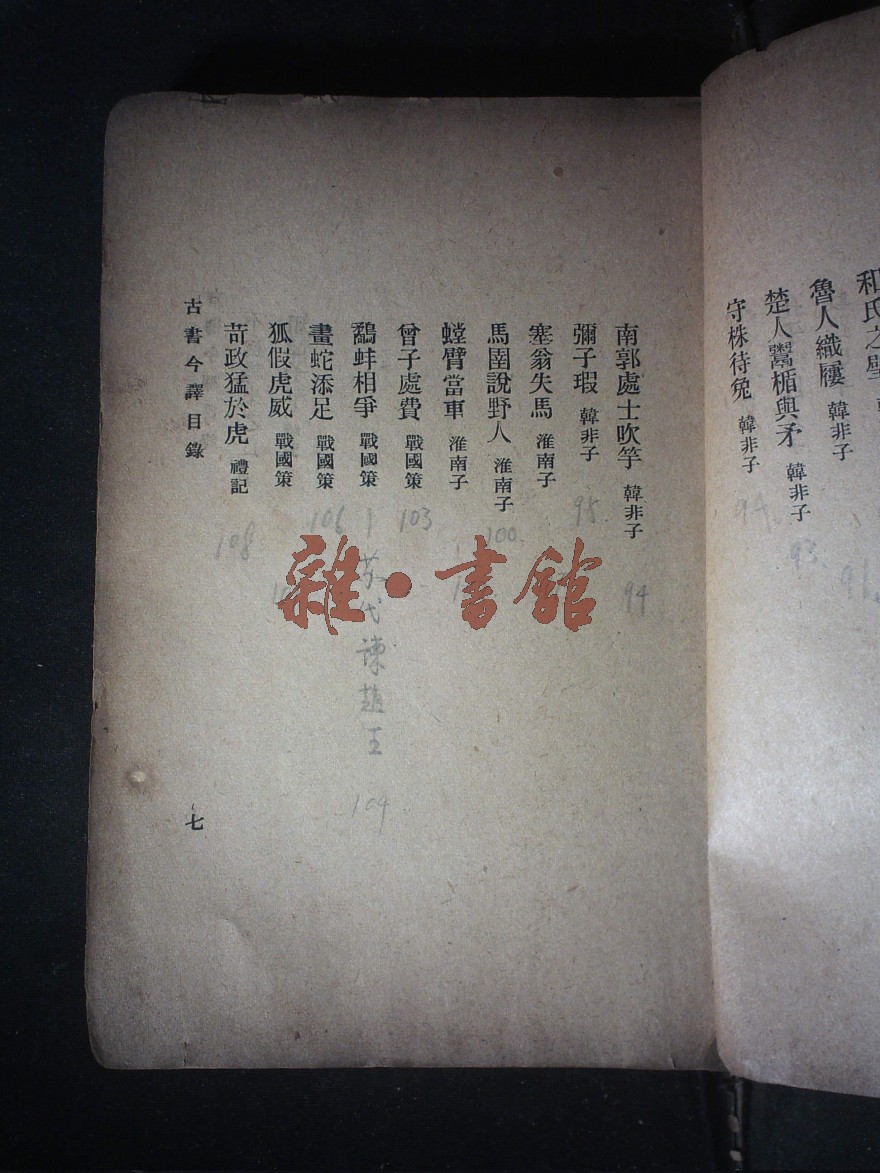 和氏之璧
魯人織屨 韓非子
91
楚人鬻楯與矛 韓非子
93
守株待兔 韓非子
94
南郭處士吹竽 韓非子
94
彌子瑕 韓非子
95
塞翁失馬 淮南子
馬圉說野人 淮南子
100
螳臂當車 淮南子
曾子處費 戰國策
103
鷸蚌相爭 戰國策
蘇代諫趙王
104
畫蛇添足 戰國策
106
狐假虎威 戰國策
苛政猛於虎 禮記
108
古書今譯目錄
七
雜·書館